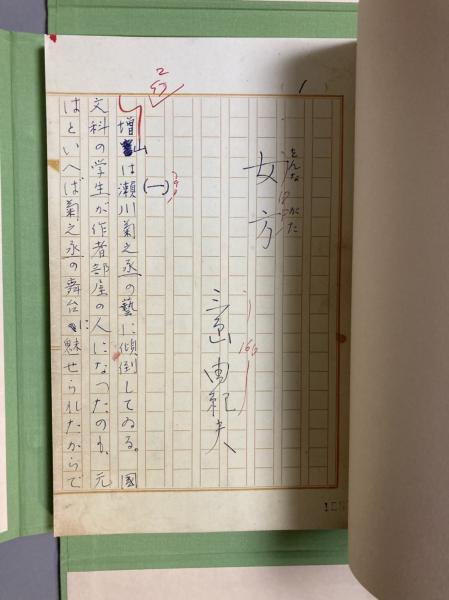 1
女方
をんながた
三島由紀夫
16P
(一)
増山は瀬川菊之丞の藝に傾倒してゐる。國
文科の学生が作者部屋の人になつたのも、元
はといへば菊之丞の舞台に魅せられたからで